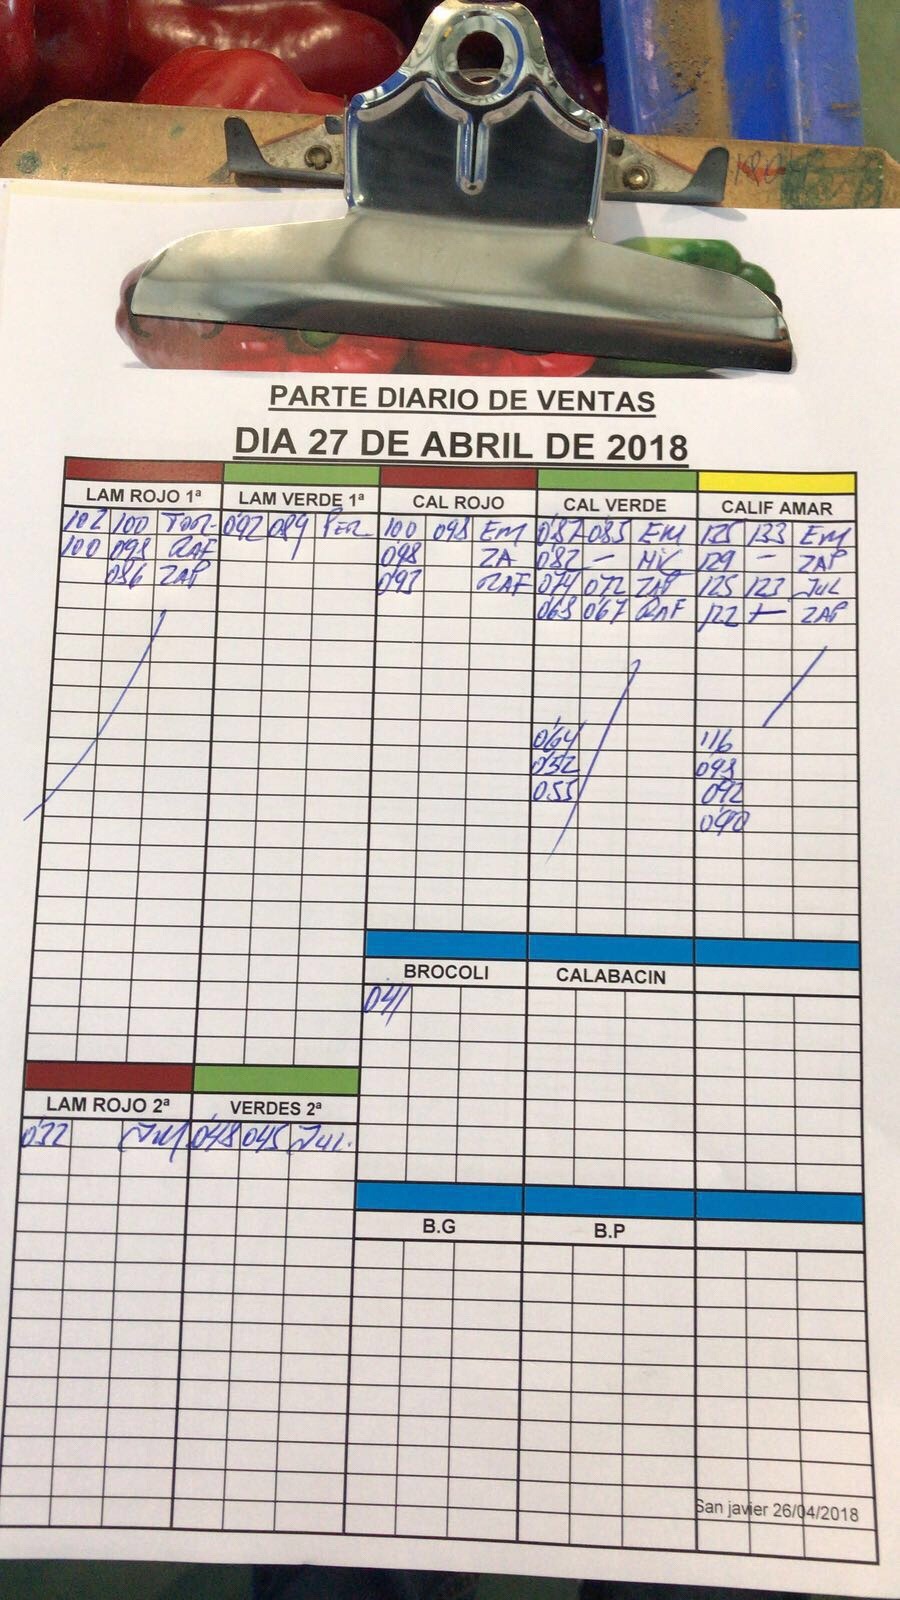 PARTE DIARIO DE VENTAS
DIA 27 DE ABRIL DE 2018
LAM ROJO 1ª LAM VERDE 1ª CAL ROJO CAL VERDE CALIF AMAR
102 100 0'92 089 PER 100 098 EM 0'87 085 EM 135 133 EM
100 098 RAF 098 ZA 0'82 - 129 - ZAP
086 ZAP 093 RAF 074 072 ZAP 125 123 JUL
068 067 RAF 122 - ZAP
064 116
052 093
055 092
090
BROCOLI CALABACIN
041
LAM ROJO 2ª VERDES 2ª
032 JUL 048 045 JUL.
B.G B.P
San javier 26/04/2018